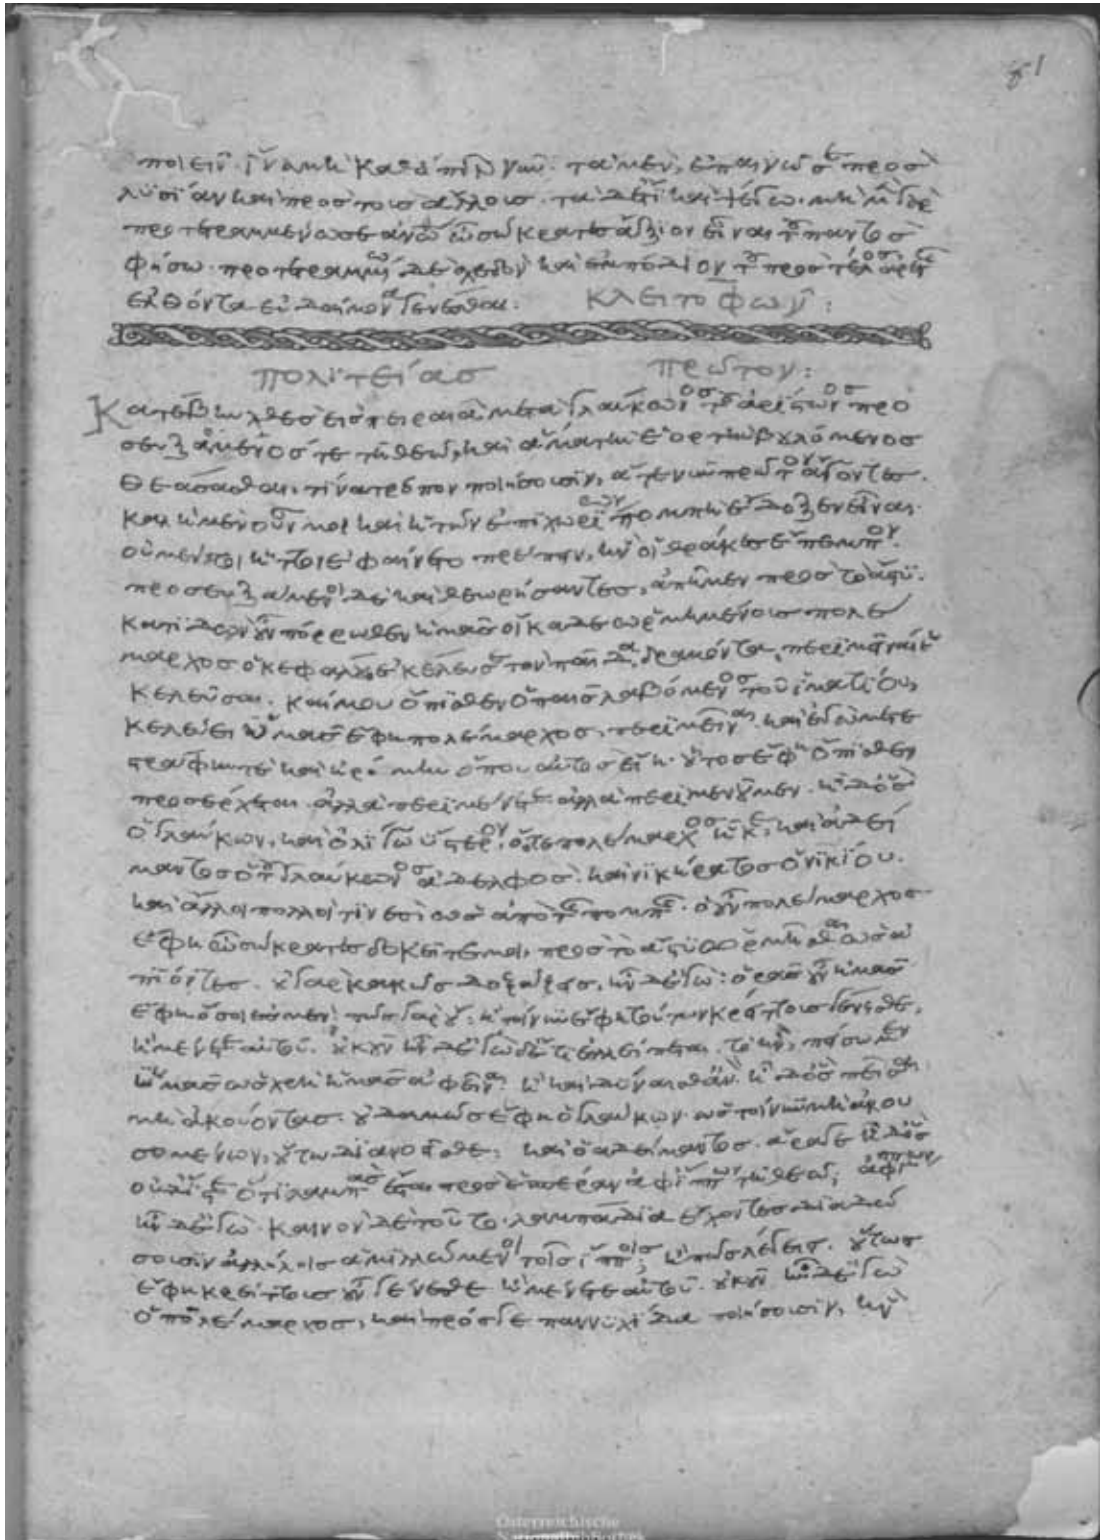 ποιεῖν. ἵνα μὴ καθάπερ νῦν τὰ μὲν, ἐπαινῶ σε πρὸς
λυσίαν καὶ πρὸς τοὺς ἄλλους. τὰ δέ τι καὶ ψέγω. μὴ μὲν γὰρ
προτετραμμένω σε ἀνθρώπω ὦ σώκρατες ἄξιον εἶναι τοῦ παντὸς
φήσω. προτετραμμένω δὲ σχεδὸν καὶ ἐμπόδιον τοῦ πρὸς τέλος ἀρετῆς
ἐλθόντα εὐδαίμονα γενέσθαι. κλειτοφῶν:
πολιτείας πρῶτον:
Κατέβην χθὲς εἰς πειραιᾶ μετὰ γλαύκωνος τοῦ ἀρίστωνος προ
σευξόμενός τε τῆ θεῶ, καὶ ἅμα τὴν ἑορτὴν βουλόμενος
θεάσασθαι, τίνα τρόπον ποιήσουσιν, ἅτε νῦν πρῶτον ἄγοντες.
καλὴ μὲν οὖν μοι καὶ ἡ τῶν ἐπιχωρίων πομπὴ ἔδοξεν εἶναι.
οὐ μέντοι ἧττον ἐφαίνετο πρέπειν, ἣν οἱ θρᾶκες ἔπεμπον.
προσευξάμενοι δὲ καὶ θεωρήσαντες, ἀπῆμεν πρὸς τὸ ἄστυ.
κατιδὼν οὖν πόρρωθεν ἡμᾶς οἴκαδε ὡρμημένους πολέ
μαρχος ὁ κεφάλου ἐκέλευσε τὸν παῖδα δραμόντα, περιμεῖναί ἑ
κελεῦσαι. καί μου ὄπισθεν ὁ παῖς λαβόμενος τοῦ ἱματίου,
κελεύει ὑμᾶς ἔφη πολέμαρχος, περιμεῖναι. καὶ ἐγὼ μετε
στράφην τε καὶ ἠρόμην ὅπου αὐτὸς εἴη. οὗτος ἔφη ὄπισθεν
προσέρχεται. ἀλλὰ περιμένετε ἀλλὰ περιμενοῦμεν. ἦ δ' ὃς
ὁ γλαύκων, καὶ ὀλίγω ὕστερον, ὅ τε πολέμαρχος ἧκε, καὶ ἀδεί
μαντος ὁ τοῦ γλαύκωνος ἀδελφὸς. καὶ νικήρατος ὁ νικίου.
καὶ ἄλλοι πολλοί τινες ὡς ἀπὸ τῆς πομπῆς. ὁ οὖν πολέμαρχος
ἔφη ὦ σώκρατες δοκεῖτέ μοι, πρὸς τὸ ἄστυ ὡρμῆσθαι ὡς ἀ
πιόντες. οὐ γὰρ κακῶς δοξάζεις, ἦν δ' ἐγὼ: ὁρᾶς οὖν ἡμᾶς
ἔφη ὅσοι ἐσμὲν; πῶς γὰρ οὔ; ἢ τοίνυν ἔφη τούτων κρείττους γένεσθε,
ἢ μένετε αὐτοῦ. οὐκοῦν ἦν δ' ἐγὼ ἔτι ἐλλείπεται. τὸ ἢν, πείσωμεν
ὑμᾶς ὡς χρὴ ἡμᾶς ἀφεῖναι ἦ καὶ δύναισθ' ἂν. ἦ δ' ὃς πεῖσαι
μὴ ἀκούοντας. οὐδαμῶς ἔφη ὁ γλαύκων. ὡς τοίνυν μὴ ἀκου
σομένων, οὕτω διανοεῖσθε; καὶ ὁ ἀδείμαντος. ἆρά γε ἦ δ' ὃς
οὐδ' ἴστε ὅτι λαμπὰς ἔσται πρὸς ἑσπέραν ἀφ' ἵππων τῆ θεῶ; ἀφ' ἵππων
ἦν δ' ἐγὼ. καινόν γε τοῦτο. λαμπάδια ἔχοντες διαδώ
σουσιν ἀλλήλοις ἁμιλλώμενοι τοῖς ἵπποις; ἢ πῶς λέγεις. οὕτως
ἔφη κρείττους οὖν γένεσθε ἢ μένετε αὐτοῦ. οὐκοῦν ἦν δ' ἐγὼ
ὁ πολέμαρχος, καὶ πρός γε παννυχίδα ποιήσουσιν, ἣν